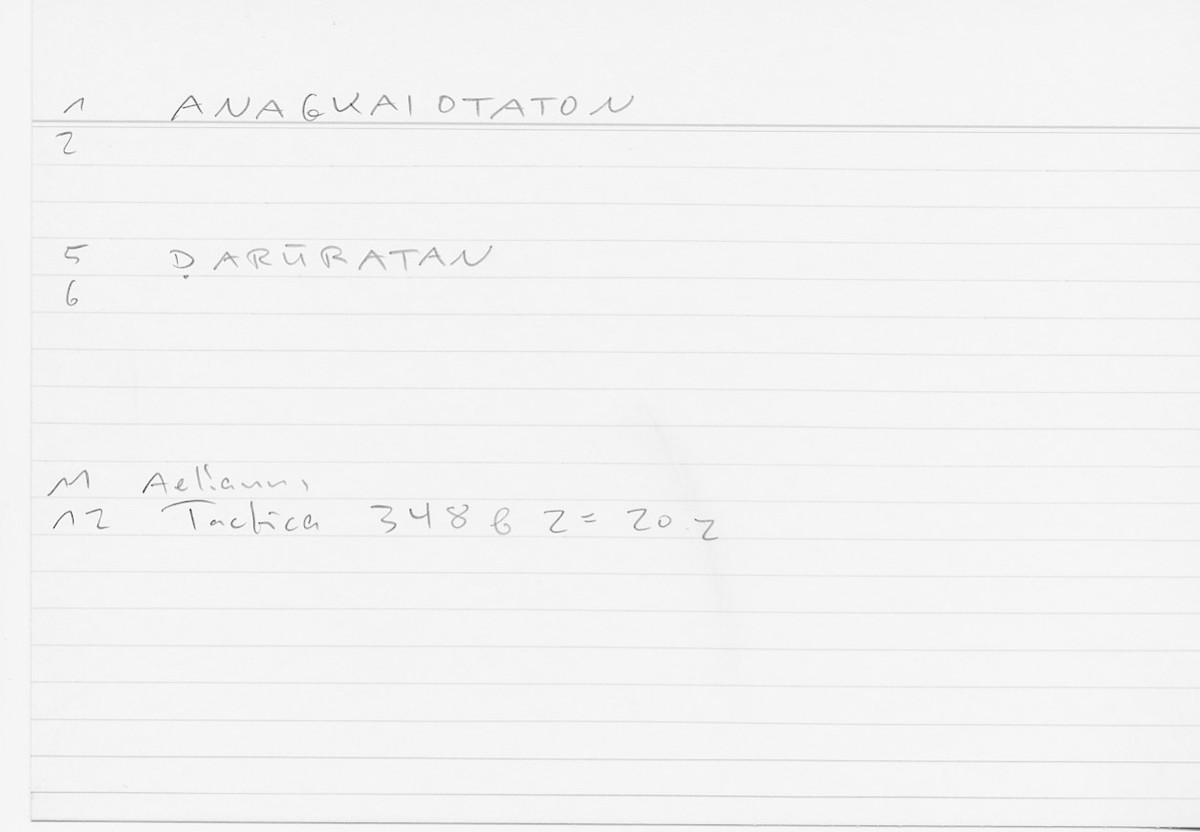 1 ANAGKAIOTATON
2
5 ḌARŪRATAN
6
11 Aelianus
12 Tactica 348 b 2 = 20.2